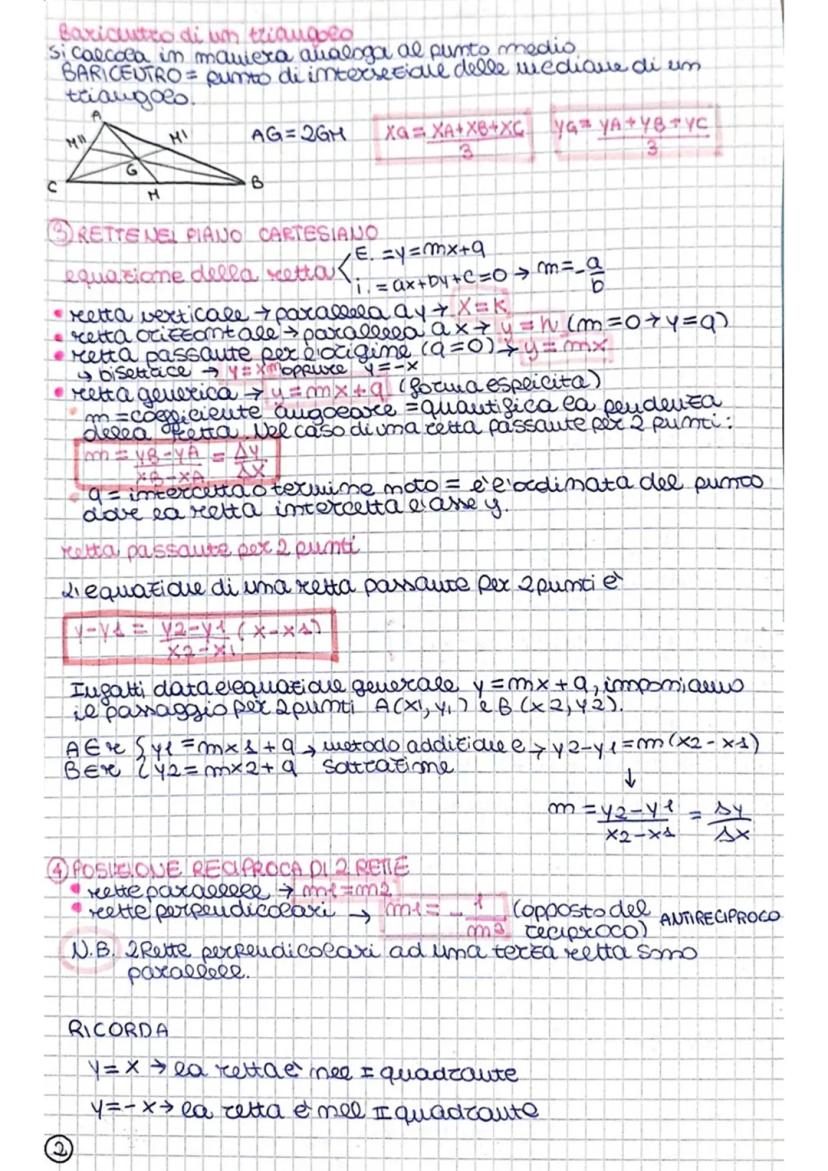 Baricentro di un triangolo
si calcola in maniera analoga al punto medio
BARICENTRO = punto di intersezione delle mediane di un
triangolo.
A
M'' M'
G
C B
M
AG = 2GM
XG = XA+XB+XC / 3
YG = YA+YB+YC / 3
③ RETTE NEL PIANO CARTESIANO
equazione della retta
E. = y = mx+q
i. = ax+by+c=0 → m = -a/b
• retta verticale → parallela a y → X=K
• retta orizzontale → parallela a x → y = h (m=0 → y=q)
• retta passante per l'origine (q=0) → y = mx
↳ bisettrice → y = x oppure y=-x
• retta generica → y = mx+q (forma esplicita)
• m = coefficiente angolare = quantifica la pendenza
della retta. Nel caso di una retta passante per 2 punti:
m = yB-yA / xB-xA = Δy / Δx
• q = intercetta o termine noto = è l'ordinata del punto
dove la retta intercetta l'asse y.
retta passante per 2 punti
L'equazione di una retta passante per 2 punti è
y-y1 = y2-y1 / x2-x1 (x-x1)
Infatti data l'equazione generale y = mx+q, imponiamo
il passaggio per 2 punti A(x1, y1) e B(x2, y2).
A∈r { y1 = mx1+q → metodo addizione e → y2-y1 = m(x2-x1)
B∈r { y2 = mx2+q sottrazione
↓
m = y2-y1 / x2-x1 = Δy / Δx
④ POSIZIONE RECIPROCA DI 2 RETTE
• rette parallele → m1=m2
• rette perpendicolari → m1 = - 1/m2 (opposto del reciproco) ANTIRECIPROCO
N.B. 2 Rette perpendicolari ad una terza retta sono
parallele.
RICORDA
y=x → la retta è nel I quadrante
y=-x → la retta è nel II quadrante
2